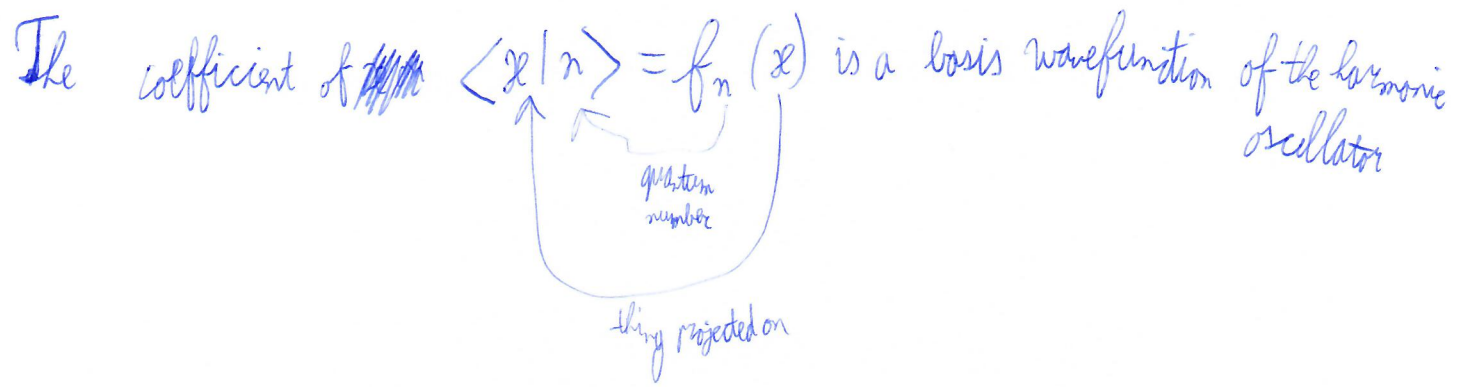 The coefficient of ⟨x|n⟩ = fₙ(x) is a basis wavefunction of the harmonic
oscillator
quantum
number
thing projected on